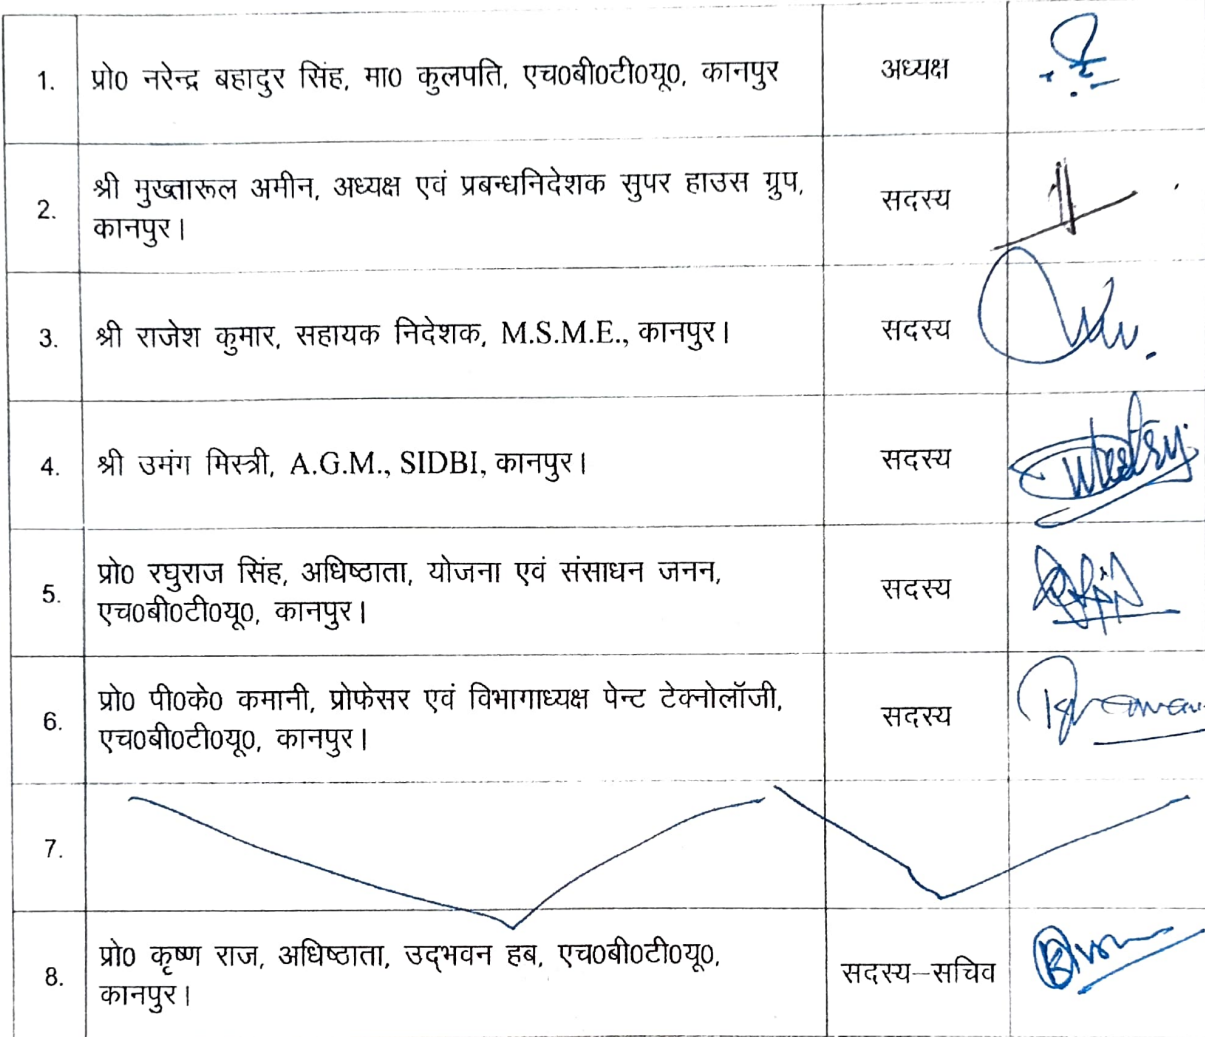 1. प्रो0 नरेन्द्र बहादुर सिंह, मा0 कुलपति, एच0बी0टी0यू0, कानपुर अध्यक्ष
2. श्री मुख्तारूल अमीन, अध्यक्ष एवं प्रबन्धनिदेशक सुपर हाउस ग्रुप, सदस्य
कानपुर।
3. श्री राजेश कुमार, सहायक निदेशक, M.S.M.E., कानपुर। सदस्य
4. श्री उमंग मिस्त्री, A.G.M., SIDBI, कानपुर। सदस्य
5. प्रो0 रघुराज सिंह, अधिष्ठाता, योजना एवं संसाधन जनन, सदस्य
एच0बी0टी0यू0, कानपुर।
6. प्रो0 पी0के0 कमानी, प्रोफेसर एवं विभागाध्यक्ष पेन्ट टेक्नोलॉजी, सदस्य
एच0बी0टी0यू0, कानपुर।
7.
8. प्रो0 कृष्ण राज, अधिष्ठाता, उद्भवन हब, एच0बी0टी0यू0, सदस्य–सचिव
कानपुर।